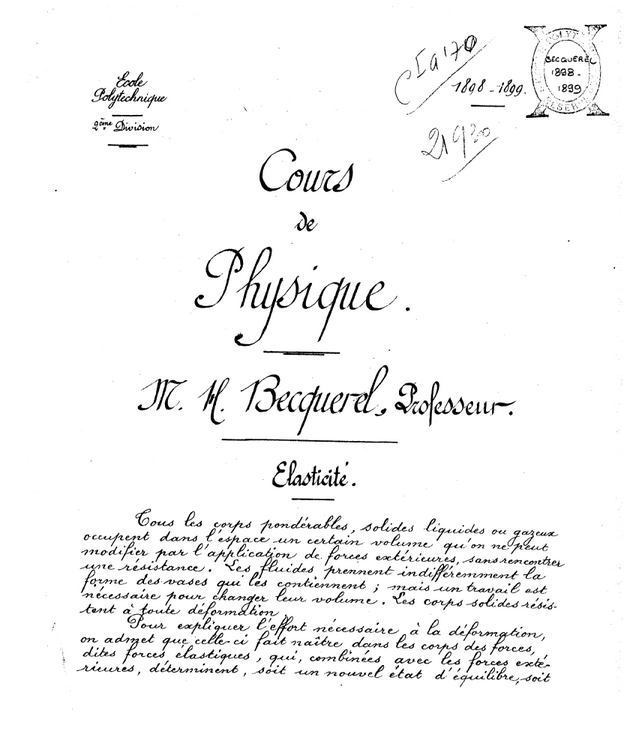 Ecole
Polytechnique
2ème Division
CIa 170
1898-1899.
21920
BECQUEREL
1898-
1899
Cours
de
Physique.
M. H. Becquerel, Professeur.
Elasticité.
Tous les corps pondérables, solides liquides ou gazeux
occupent dans l'espace un certain volume qu'on ne peut
modifier par l'application de forces extérieures, sans rencontrer
une résistance. Les fluides prennent indifféremment la
forme des vases qui les contiennent; mais un travail est
nécessaire pour changer leur volume. Les corps solides résis-
tent à toute déformation
Pour expliquer l'effort nécessaire à la déformation,
on admet que celle-ci fait naître dans les corps des forces,
dites forces élastiques, qui, combinées avec les forces exté-
rieures, déterminent, soit un nouvel état d'équilibre, soit